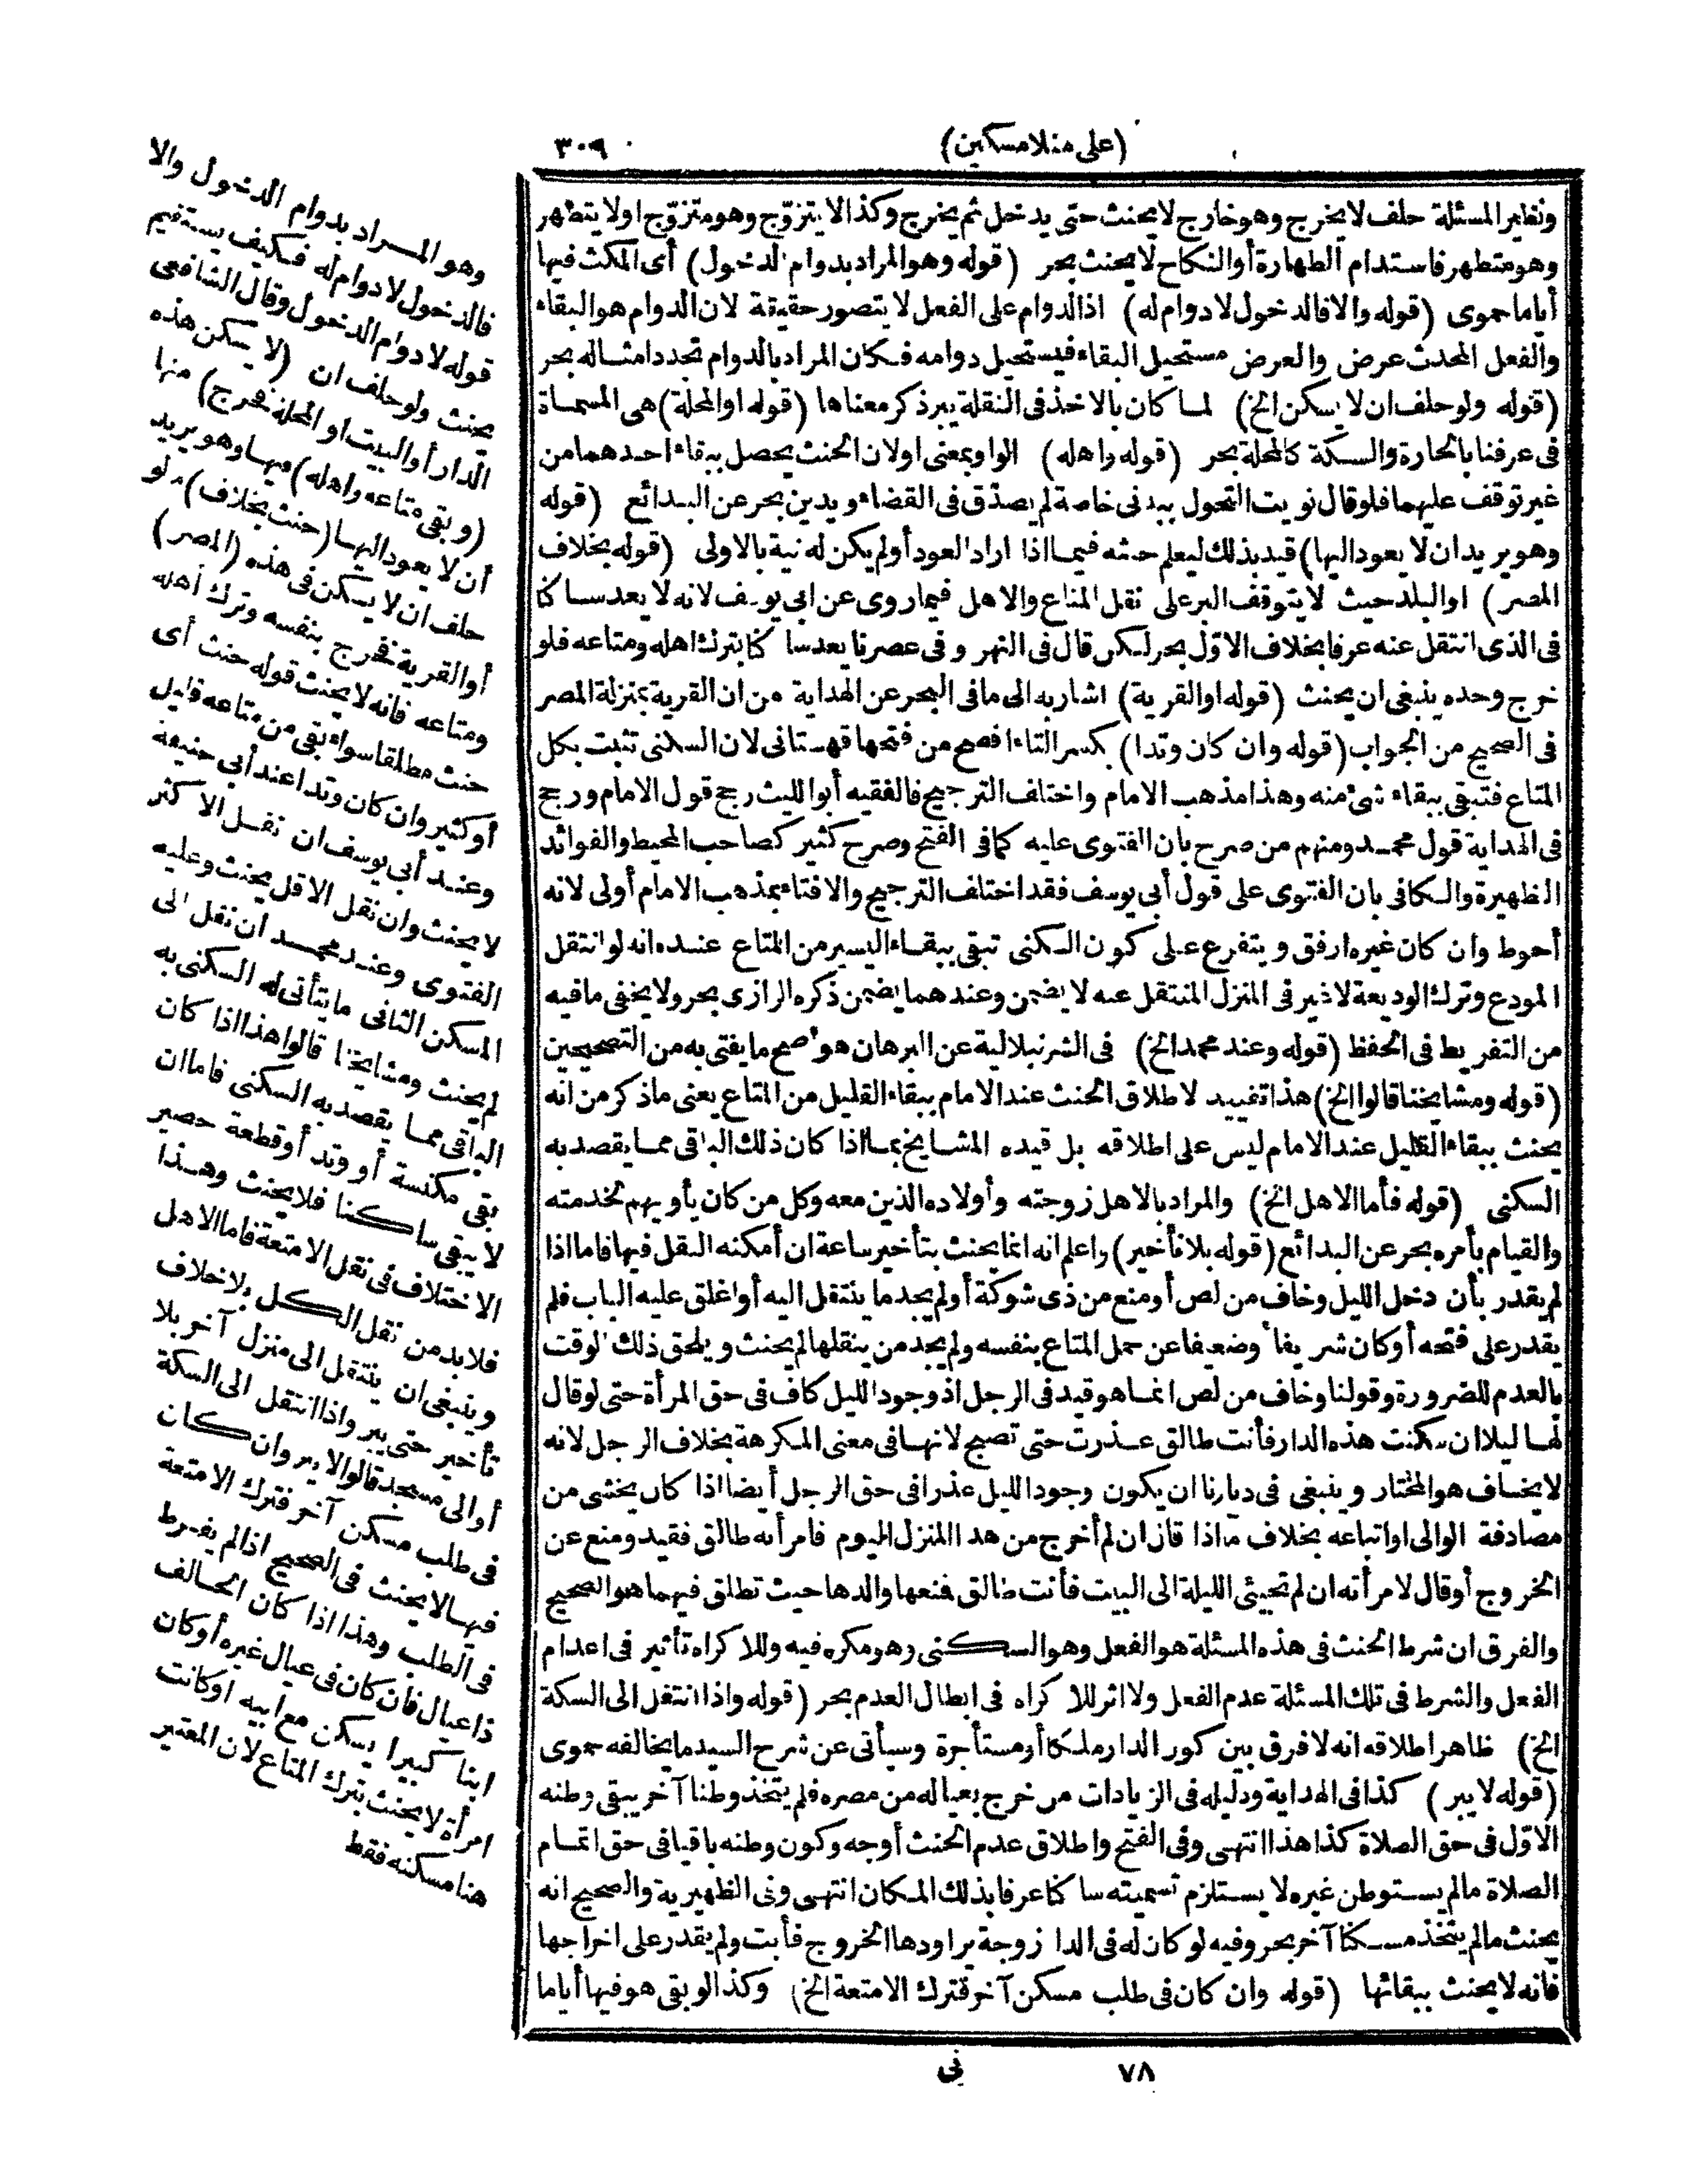 (على منلا مسكين)
٣٠٩
ونظير المسئلة حلف لا يخرج وهو خارج لا يحنث حتى يدخل ثم يخرج وكذا لا يتزوّج وهو متزوّج او لا يتطهر
وهو متطهر فاستدام الطهارة أو النكاح لا يحنث بحر (قوله وهو المراد بدوام الدخول) أى المكث فيها
أياما حموى (قوله والا فالدخول لا دوام له) اذ الدوام على الفعل لا يتصور حقيقة لان الدوام هو البقاء
والفعل المحدث عرض والعرض مستحيل البقاء فيستحيل دوامه فكان المراد بالدوام تجدد امثاله بحر
(قوله ولو حلف ان لا يسكن الخ) لما كان بالاخذ فى النقلة يبر ذكر معناها (قوله او المحلة) هى المسماة
فى عرفنا بالحارة والسكة كالمحلة بحر (قوله واهله) الواو بمعنى او لان الحنث يحصل ببقاء احدهما من
غير توقف عليهما فلو قال نويت التحول ببدنى خاصة لم يصدّق فى القضاء ويدين بحر عن البدائع (قوله
وهو يريد ان لا يعود اليها) قيد بذلك ليعلم حنثه فيما اذا اراد العود أو لم يكن له نية بالاولى (قوله بخلاف
المصر) او البلد حيث لا يتوقف البر على نقل المتاع والاهل فيما روى عن ابى يوسف لانه لا يعد ساكنا
فى الذى انتقل عنه عرفا بخلاف الاوّل بحر لكن قال فى النهر وفى عصرنا يعد ساكنا بترك اهله ومتاعه فلو
خرج وحده ينبغى ان يحنث (قوله او القرية) اشار به الى ما فى البحر عن الهداية من ان القرية بمنزلة المصر
فى الصحيح من الجواب (قوله وان كان وتدا) بكسر التاء افصح من فتحها قهستانى لان السكنى تثبت بكل
المتاع فتبقى ببقاء شئ منه وهذا مذهب الامام واختلف الترجيح فالفقيه أبو الليث رجح قول الامام ورجح
فى الهداية قول محمد ومنهم من صرح بان الفتوى عليه كما فى الفتح وصرح كثير كصاحب المحيط والفوائد
الظهيرة والكافى بان الفتوى على قول أبى يوسف فقد اختلف الترجيح والافتاء بمذهب الامام أولى لانه
أحوط وان كان غيره ارفق ويتفرع على كون السكنى تبقى ببقاء اليسير من المتاع عنده انه لو انتقل
المودع وترك الوديعة لا غير فى المنزل المنتقل عنه لا يضمن وعندهما يضمن ذكره الرازى بحر ولا يخفى ما فيه
من التفريط فى الحفظ (قوله وعند محمد الخ) فى الشرنبلالية عن البرهان هو اصح ما يفتى به من التصحيحين
(قوله ومشايخنا قالوا الخ) هذا تقييد لاطلاق الحنث عند الامام ببقاء القليل من المتاع يعنى ما ذكر من انه
يحنث ببقاء القليل عند الامام ليس على اطلاقه بل قيده المشايخ بما اذا كان ذلك الباقى مما يقصد به
السكنى (قوله فأما الاهل الخ) والمراد بالاهل زوجته وأولاده الذين معه وكل من كان يأويهم لخدمته
والقيام بأمره بحر عن البدائع (قوله بلا تأخير) واعلم انه انما يحنث بتأخير ساعة ان أمكنه النقل فيها فاما اذا
لم يقدر بأن دخل الليل وخاف من لص أو منع من ذى شوكة أو لم يجد ما ينتقل اليه أو اغلق عليه الباب فلم
يقدر على فتحه أو كان شريفا أو ضعيفا عن حمل المتاع بنفسه ولم يجد من ينقلها لم يحنث ويلحق ذلك الوقت
بالعدم للضرورة وقولنا وخاف من لص انما هو قيد فى الرجل اذ وجود الليل كاف فى حق المرأة حتى لو قال
لها ليلا ان سكنت هذه الدار فأنت طالق عذرت حتى تصبح لانها فى معنى المكرهة بخلاف الرجل لانه
لا يخاف هو المختار وينبغى فى ديارنا ان يكون وجود الليل عذرا فى حق الرجل أيضا اذا كان يخشى من
مصادفة الوالى او اتباعه بخلاف ما اذا قال ان لم أخرج من هذا المنزل اليوم فامرأته طالق فقيد ومنع عن
الخروج أو قال لامرأته ان لم تجيئى الليلة الى البيت فأنت طالق فمنعها والدها حيث تطلق فيهما هو الصحيح
والفرق ان شرط الحنث فى هذه المسئلة هو الفعل وهو السكنى وهو مكره فيه وللاكراه تأثير فى اعدام
الفعل والشرط فى تلك المسئلة عدم الفعل ولا اثر للاكراه فى ابطال العدم بحر (قوله واذا انتقل الى السكة
الخ) ظاهر اطلاقه انه لا فرق بين كون الدار ملكا أو مستأجرة وسيأتى عن شرح السيد ما يخالفه حموى
(قوله لا يبر) كذا فى الهداية ودليله فى الزيادات من خرج بعياله من مصره فلم يتخذ وطنا آخر يبقى وطنه
الاوّل فى حق الصلاة كذا هذا انتهى وفى الفتح واطلاق عدم الحنث أوجه وكون وطنه باقيا فى حق اتمام
الصلاة ما لم يستوطن غيره لا يستلزم تسميته ساكنا عرفا بذلك المكان انتهى وفى الظهيرية والصحيح انه
يحنث ما لم يتخذ مسكنا آخر بحر وفيه لو كان له فى الدار زوجة يراودها الخروج فأبت ولم يقدر على اخراجها
فانه لا يحنث ببقائها (قوله وان كان فى طلب مسكن آخر فترك الامتعة الخ) وكذا لو بقى هو فيها أياما
وهو المراد بدوام الدخول والا
فالدخول لا دوام له فكيف يستقيم
قوله لا دوام الدخول وقال الشافعى
يحنث ولو حلف ان (لا يسكن هذه
الدار أو البيت او المحلة فخرج) منها
(وبقى متاعه واهله) فيها وهو يريد
أن لا يعود اليها (حنث بخلاف) ما لو
حلف ان لا يسكن فى هذه (المصر)
أو القرية فخرج بنفسه وترك أهله
ومتاعه فانه لا يحنث قوله حنث أى
حنث مطلقا سواء بقى من متاعه قليل
أو كثير وان كان وتدا عند أبى حنيفة
وعند أبى يوسف ان نقل الاكثر
لا يحنث وان نقل الاقل يحنث وعليه
الفتوى وعند محمد ان نقل الى
المسكن الثانى ما يتأتى له السكنى به
لم يحنث ومشايخنا قالوا هذا اذا كان
الباقى مما يقصد به السكنى فاما ان
بقى مكنسة أو وتد أو قطعة حصير
لا يبقى ساكنا فلا يحنث وهذا
الاختلاف فى نقل الامتعة فاما الاهل
فلا بد من نقل الكل بلا خلاف
وينبغى ان ينتقل الى منزل آخر بلا
تأخير حتى يبر واذا انتقل الى السكة
أو الى مسجد قالوا لا يبر وان كان
فى طلب مسكن آخر فترك الامتعة
فيها لا يحنث فى الصحيح اذا لم يفرط
فى الطلب وهذا اذا كان الحالف
ذا عيال فان كان فى عيال غيره أو كان
ابنا كبيرا يسكن مع ابيه او كانت
امرأة لا يحنث بترك المتاع لان المعتبر
هنا مسكنه فقط
٧٨
نى